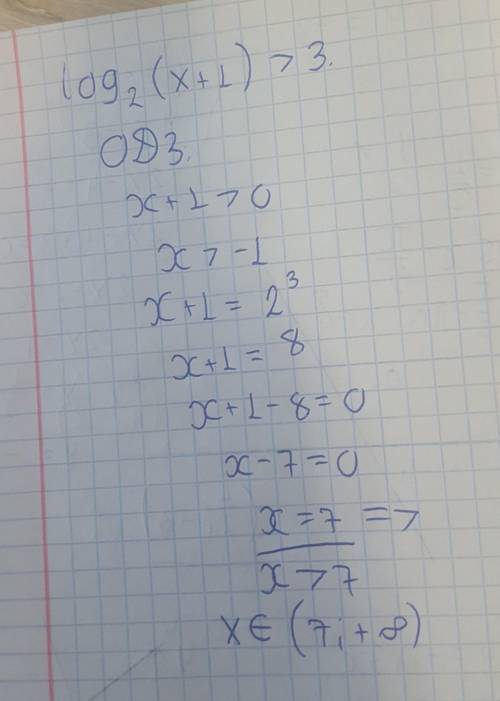 log₂(x+1) > 3.
ОДЗ.
x+1 > 0
x > -1
x+1 = 2³
x+1 = 8
x+1-8 = 0
x-7 = 0
x = 7 =>
x > 7
x ∈ (7; +∞)